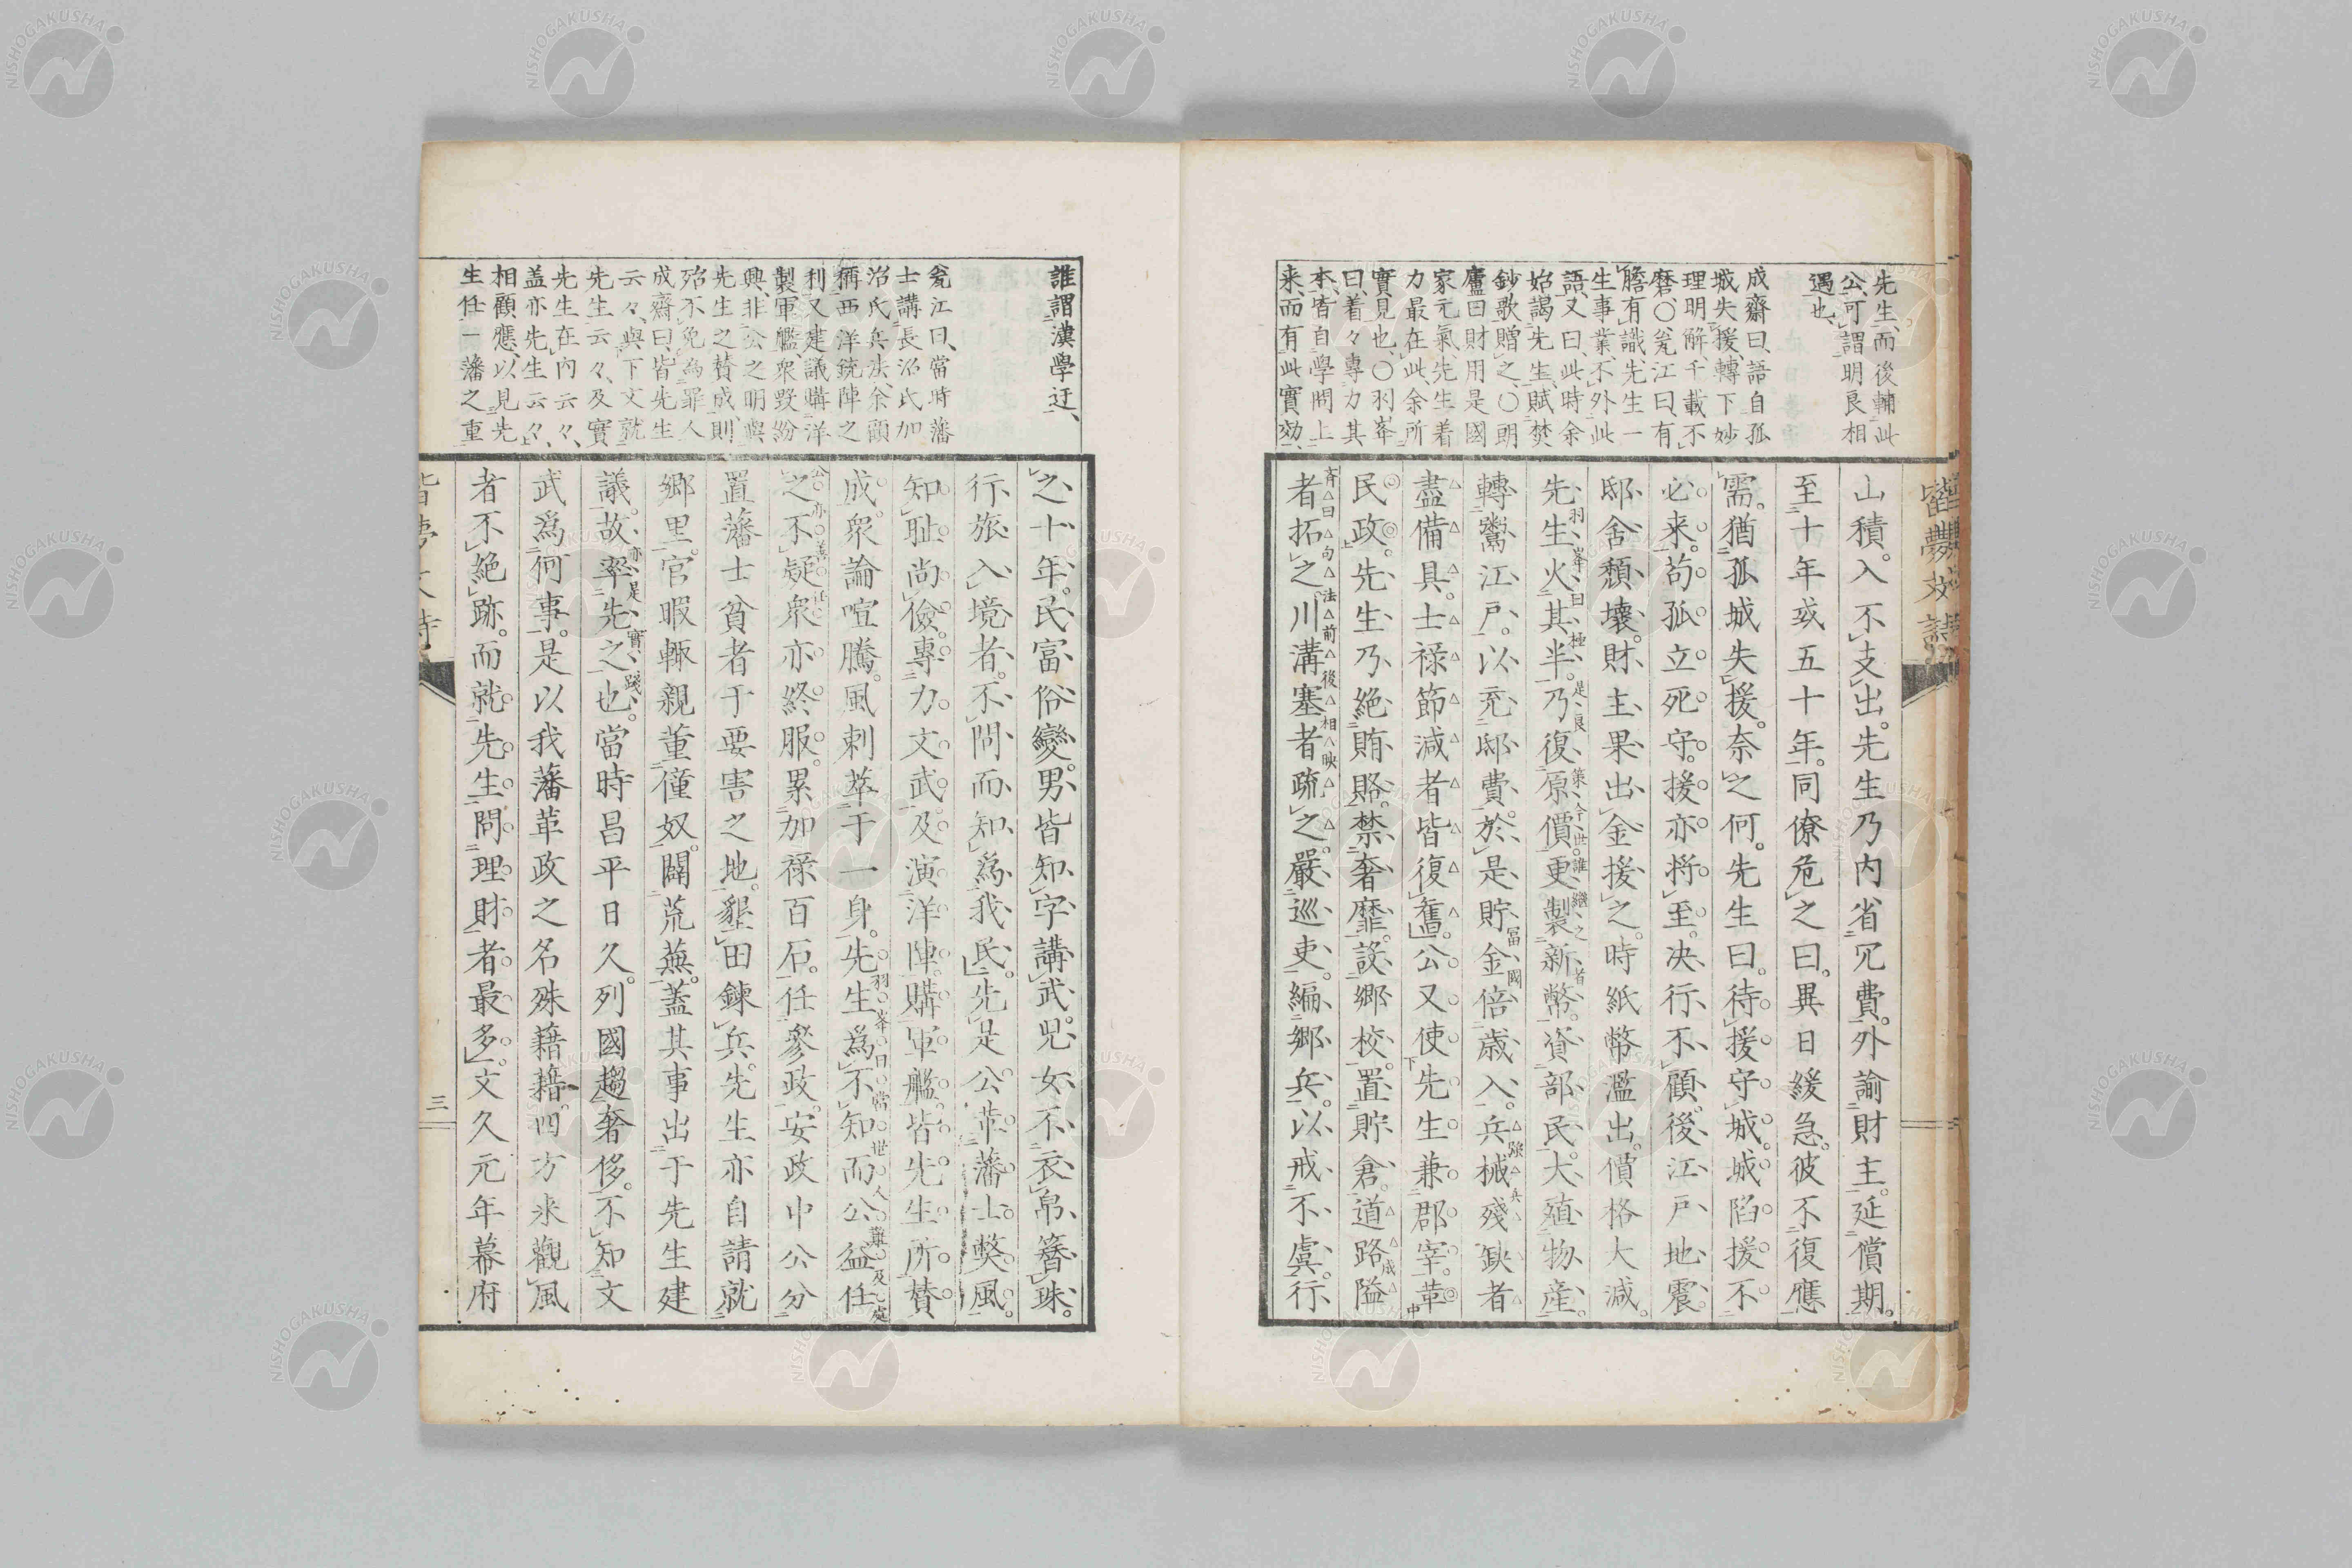 先生、而後輔此
公、可謂明良相
遇也、
成齋曰、語自孤
城失援、轉下妙
理明解、千載不
磨、〇瓮江曰、有
膽有識、先生一
生事業、不外此
語、又曰、此時余
始謁先生、賦焚
鈔歌贈之、〇朗
廬曰財用是國
家元氣、先生着
力最在此、余所
實見也、〇羽峯
曰、着々專力其
本、皆自學問上
来而有此實効、
山積。入不支出。先生乃内省冗費。外諭財主。延償期。
至十年或五十年。同僚危之曰。異日緩急。彼不復應
需。猶孤城失援。奈之何。先生曰。待援守城。城陷援不
必来。苟孤立死守。援亦将至。决行不顧。後江戸地震
邸舍頽壞。財主果出金援之。時紙幣濫出。價格大減。
先生火其半。乃復原價。更製新幣。資部民。大殖物産。
羽峯曰極是良策今世誰繼之者
轉鬻江戸。以充邸費。於是貯金倍歳入。兵械殘缺者
富國
強兵
盡備具。士祿節減者皆復舊。公又使先生兼郡宰。革
民政。先生乃絶賄賂。禁奢靡。設鄉校。置貯倉。道路隘
者拓之。川溝塞者疏之。嚴巡吏。編鄉兵。以戒不虞。行
成斉曰句法前後相映
誰謂漢學迂、
瓮江曰、當時藩
士講長沼氏加
治氏兵法、余顧
稱西洋銃陣之
利、又建議購洋
製軍艦、衆毀紛
興、非公之明與
先生之賛成、則
殆不免為罪人
成齋曰、皆先生
云々、與下文就
先生云々、及實
先生在内云々、
盖亦先生云々、
相顧應、以見先
生任一藩之重
之十年。民富俗變。男皆知字講武。兒女不衣帛簪珠。
行旅入境者。不問而知爲我民。先是公革藩士獘風。
知耻尚儉。專力文武。及演洋陣。購軍艦。皆先生所賛
成。衆論喧騰。風刺萃于一身。先生爲不知而公益任
羽峯曰當世人難及處
之不疑。衆亦終服。累加祿百石。任參政。安政中公分
公亦善任
置藩士貧者于要害之地。墾田鍊兵。先生亦自請就
鄉里。官暇輒親董僮奴。闢荒蕪。蓋其事出于先生建
議。故率先之也。當時昌平日久。列國趨奢侈。不知文
亦是實踐
武爲何事。是以我藩革政之名殊藉藉。四方来觀風
者不絶跡。而就先生問理財者最多。文久元年幕府
三